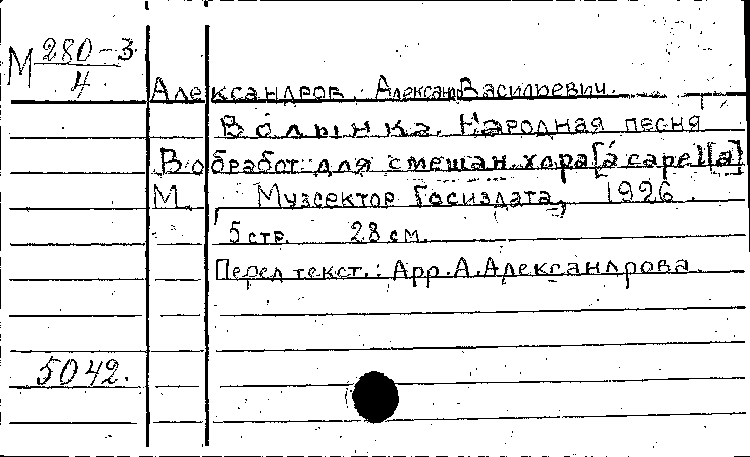 М 280-3
4
Александров, Александр Васильевич.
Волынка. Народная песня
В обработ. для смешан. хора [a capel[a]
М. Музсектор Госиздата, 1926.
5 стр. 28 см.
Перед текст.: Арр. А. Александрова.
5042.